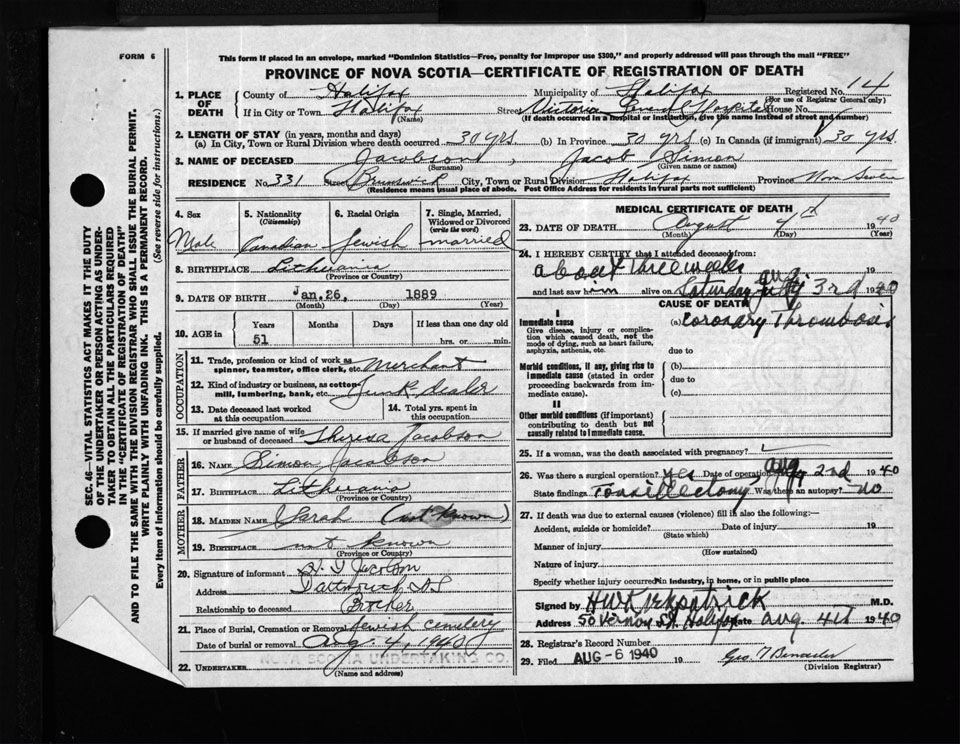 FORM 6
This form if placed in an envelope, marked "Dominion Statistics—Free, penalty for improper use $300," and properly addressed will pass through the mail "FREE"
PROVINCE OF NOVA SCOTIA—CERTIFICATE OF REGISTRATION OF DEATH
1. PLACE OF DEATH County of Halifax Municipality of Halifax Registered No. 14
(For use of Registrar General only)
If in City or Town Halifax Street Victoria General Hospital House No.
(Name) (If death occurred in a hospital or institution, give the name instead of street and number)
2. LENGTH OF STAY (in years, months and days)
(a) In City, Town or Rural Division where death occurred 30 yrs (b) In Province 30 yrs (c) In Canada (if immigrant) 30 yrs.
3. NAME OF DECEASED Jacobson, Jacob Simon
(Surname) (Given name or names)
RESIDENCE No. 331 Street Brunswick City, Town or Rural Division Halifax Province Nova Scotia
(Residence means usual place of abode. Post Office Address for residents in rural parts not sufficient)
4. Sex Male
5. Nationality (Citizenship) Canadian
6. Racial Origin Jewish
7. Single, Married, Widowed or Divorced (write the word) married
8. BIRTHPLACE Lithuania
(Province or Country)
9. DATE OF BIRTH Jan. 26, 1889
(Month) (Day) (Year)
10. AGE in Years Months Days If less than one day old
51 hrs. or min.
OCCUPATION
11. Trade, profession or kind of work as spinner, teamster, office clerk, etc. Merchant
12. Kind of industry or business, as cotton-mill, lumbering, bank, etc. Junk dealer
13. Date deceased last worked at this occupation
14. Total yrs. spent in this occupation
15. If married give name of wife or husband of deceased Theresa Jacobson
FATHER
16. NAME Simon Jacobson
17. BIRTHPLACE Lithuania
(Province or Country)
MOTHER
18. MAIDEN NAME Sarah (not known)
19. BIRTHPLACE not known
(Province or Country)
20. Signature of informant Jacobson
Address Dartmouth NS
Relationship to deceased Brother
21. Place of Burial, Cremation or Removal Jewish cemetery
Date of burial or removal Aug. 4, 1940
22. UNDERTAKER NOVA SCOTIA UNDERTAKING CO.
(Name and address)
MEDICAL CERTIFICATE OF DEATH
23. DATE OF DEATH August 4th 1940
(Month) (Day) (Year)
24. I HEREBY CERTIFY that I attended deceased:
about three weeks 19
and last saw him alive on Saturday Aug 3rd 1940
CAUSE OF DEATH
I
Immediate cause (a) Coronary Thrombosis
Give disease, injury or complication which caused death, not the mode of dying, such as heart failure, asphyxia, asthenia, etc.
due to
Morbid conditions, if any, giving rise to immediate cause (stated in order proceeding backwards from immediate cause).
(b)
due to
(c)
II
Other morbid conditions (if important) contributing to death but not causally related to immediate cause.
25. If a woman, was the death associated with pregnancy?
26. Was there a surgical operation? Yes Date of operation Aug 2nd 1940
State findings Tonsillectomy Was there an autopsy? no
27. If death was due to external causes (violence) fill in also the following:—
Accident, suicide or homicide? Date of injury 19
(State which)
Manner of injury
(How sustained)
Nature of injury
Specify whether injury occurred in industry, in home, or in public place
Signed by HW Kirkpatrick M.D.
Address 50 Vernon St. Halifax Date Aug. 4th 1940
28. Registrar's Record Number
29. Filed AUG -6 1940 19 Geo.
(Division Registrar)
SEC. 46—VITAL STATISTICS ACT MAKES IT THE DUTY
OF THE UNDERTAKER OR PERSON ACTING AS UNDER-
TAKER TO OBTAIN ALL THE PARTICULARS REQUIRED
IN THE "CERTIFICATE OF REGISTRATION OF DEATH"
AND TO FILE THE SAME WITH THE DIVISION REGISTRAR WHO SHALL ISSUE THE BURIAL PERMIT.
WRITE PLAINLY WITH UNFADING INK. THIS IS A PERMANENT RECORD.
Every item of information should be carefully supplied. (See reverse side for instructions.)